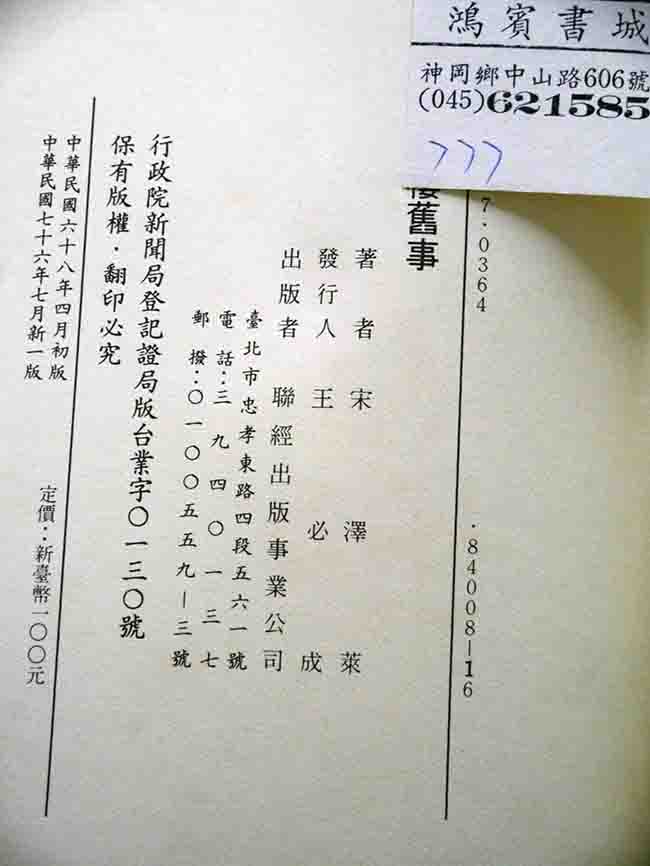 鴻賓書城
神岡鄉中山路606號
(045)621585
7·0364
·84008-16
樓舊事
著者 宋澤萊
發行人 王必成
出版者 聯經出版事業公司
臺北市忠孝東路四段五六一號
電話：三九四〇一三七
郵撥：〇一〇〇五五九－三號
行政院新聞局登記證局版台業字〇一三〇號
保有版權·翻印必究
中華民國六十八年四月初版
中華民國七十六年七月新一版
定價：新臺幣一〇〇元